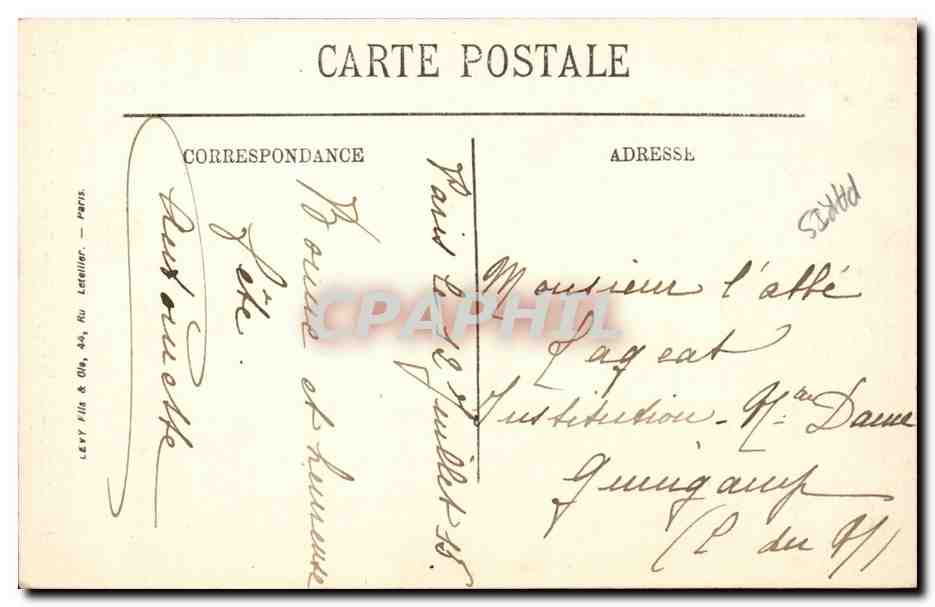 CARTE POSTALE
CORRESPONDANCE
ADRESSE
PARIS
Paris le 12 Juillet 18
Bonne et heureuse
fête.
Antoinette
Monsieur l'abbé
Lageat
Institution N.tre Dame
Guingamp
(C. du N)
LEVY Fils & Cie, 44, Ru Letellier. — Paris.
CPAPHIL